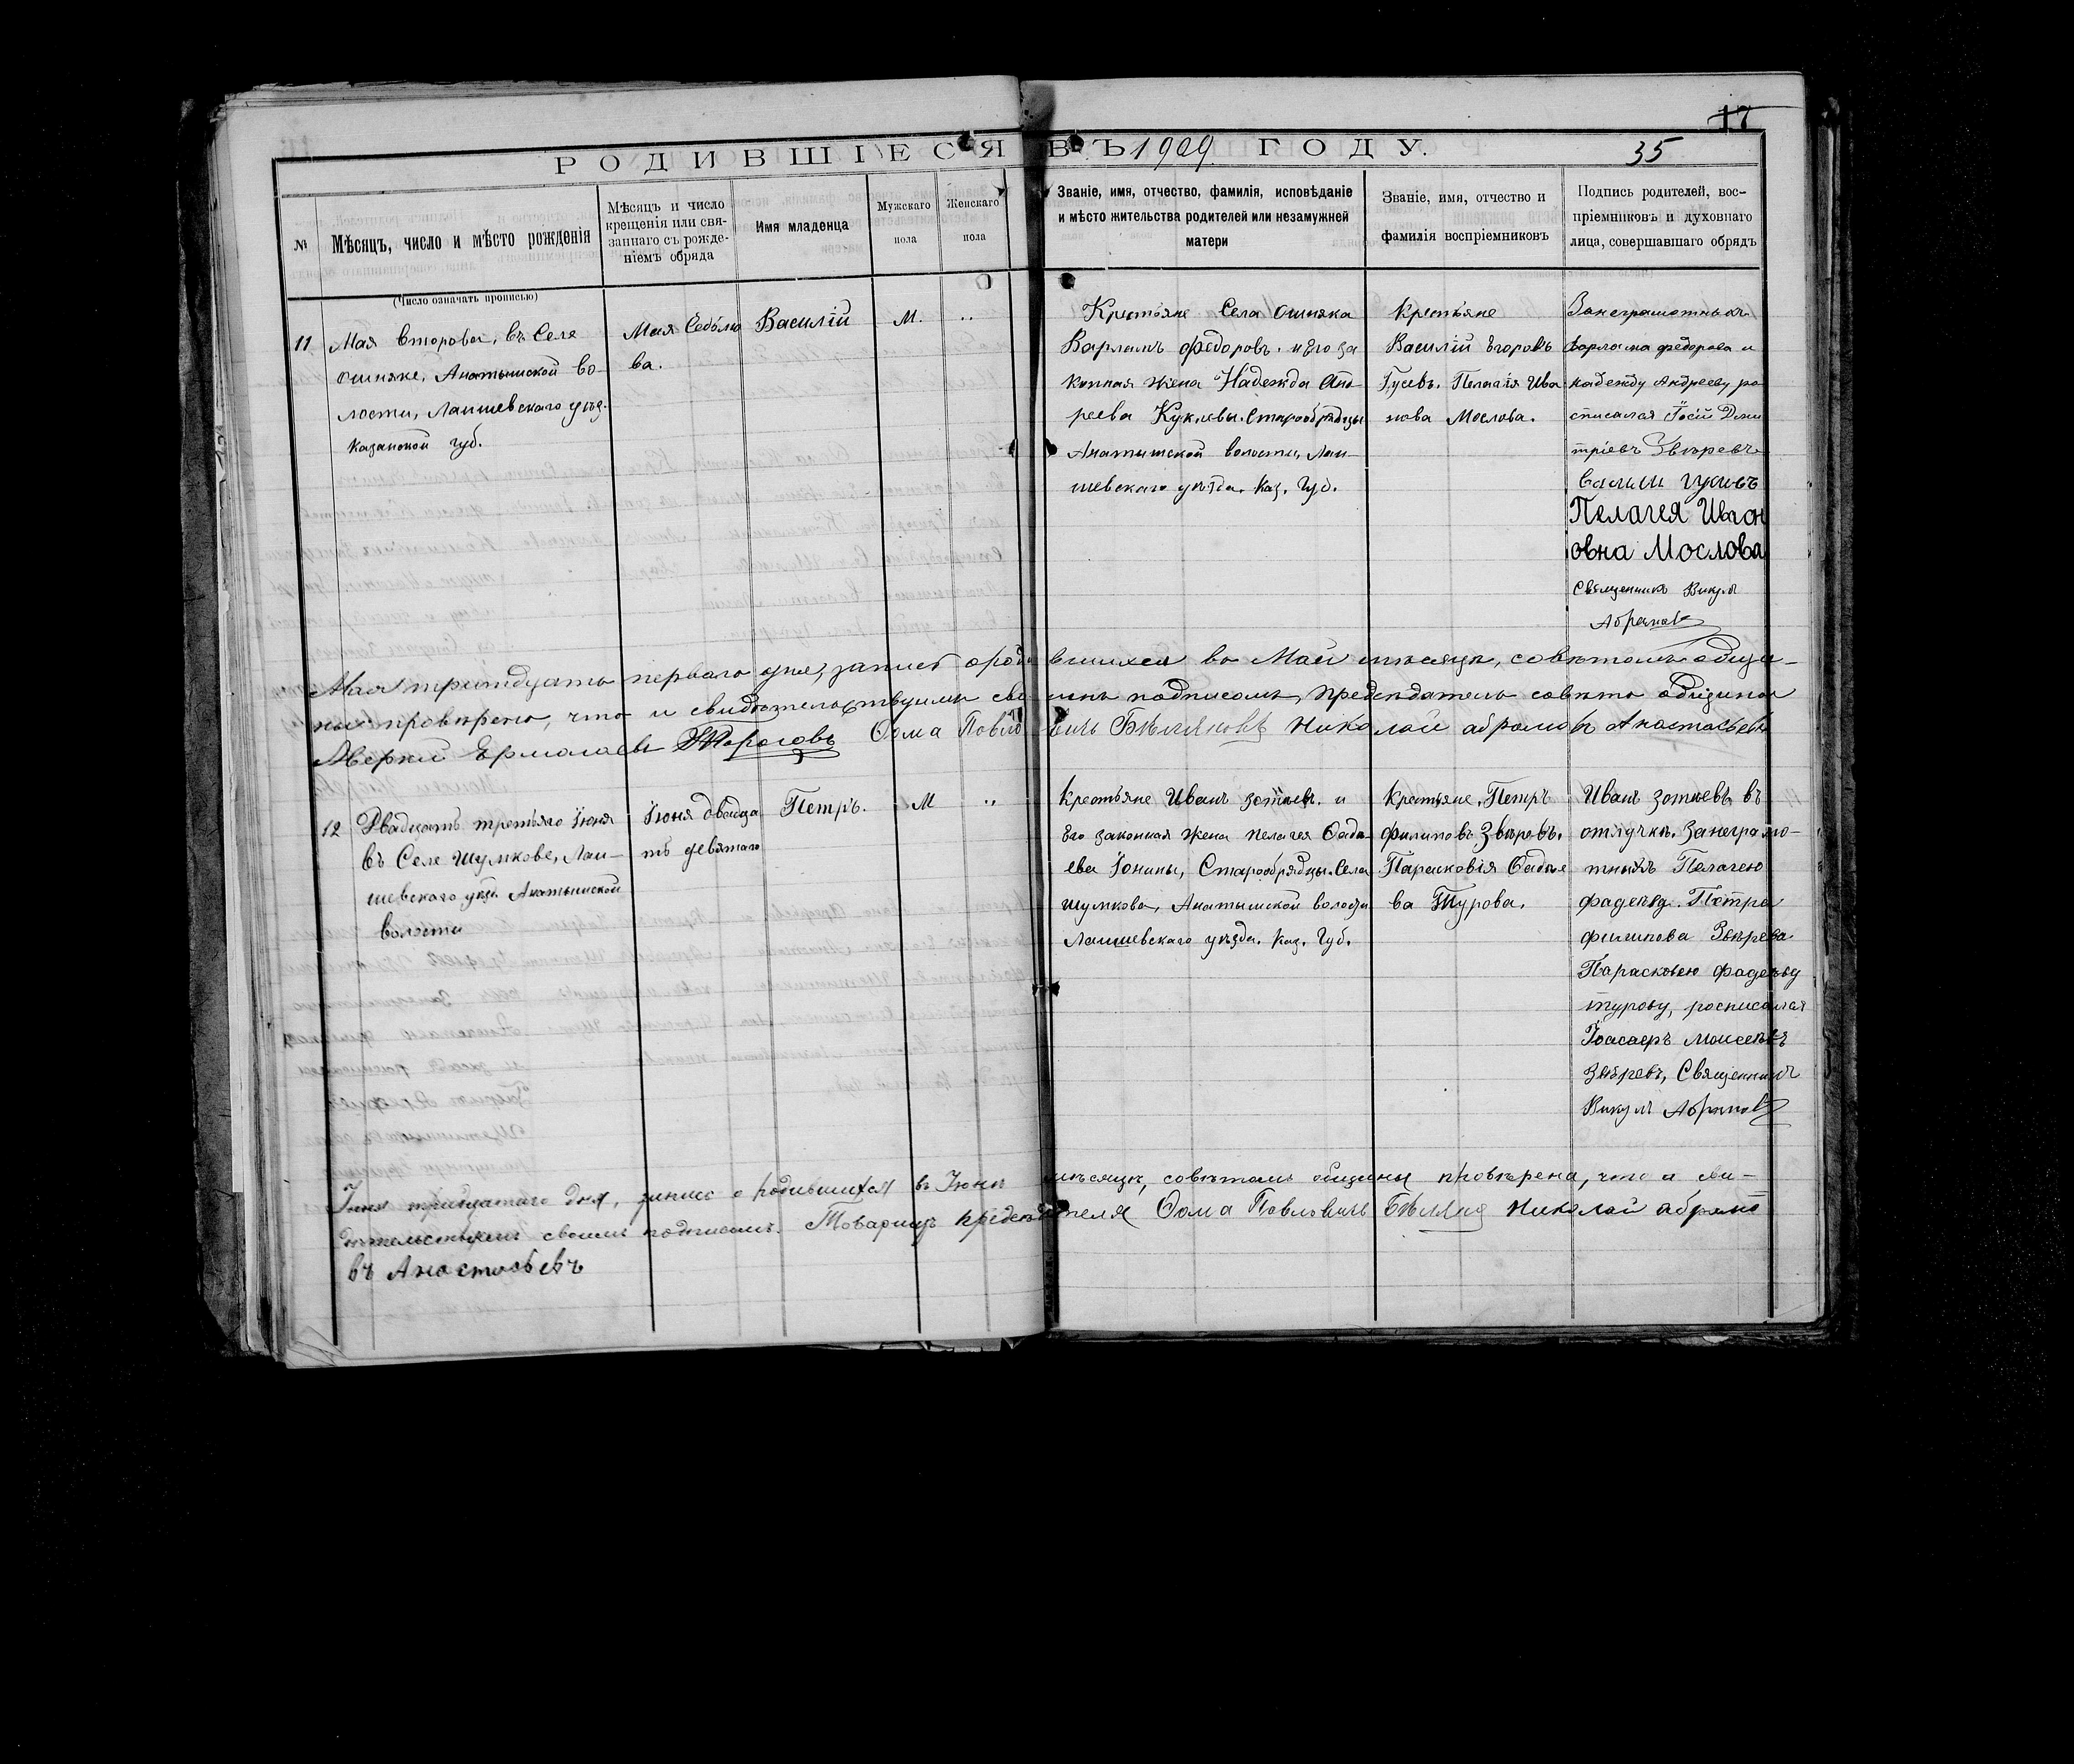 17
РОДИВШІЕСЯ ВЪ 1909 ГОДУ.
35
№
Мѣсяцъ, число и мѣсто рожденія
(Число означать прописью)
Мѣсяцъ и число
крещенія или свя-
заннаго съ рожде-
ніемъ обряда
Имя младенца
Мужскаго
пола
Женскаго
пола
Званіе, имя, отчество, фамилія, исповѣданіе
и мѣсто жительства родителей или незамужней
матери
Званіе, имя, отчество и
фамилія воспріемниковъ
Подпись родителей, вос-
пріемниковъ и духовнаго
лица, совершавшаго обрядъ
11
Мая второва, въ Селе
Ошняке, Анатышской во-
лости, Лаишевскаго уѣз.
Казанской губ.
Мая Седьмо
ва.
Василій
М.
„
Крестьяне Села Ошняка
Варламъ Федоровъ. и Его за
конная жена Надежда Анд
реева Куклевы. Старообрядцы
Анатышской волости, Лаи-
шевскаго уѣзда. Каз. Губ.
Крестьяне
Василій Егоровъ
Гусевъ. Пелагія Ива
нова Мослова.
Занеграмотныхъ
Варлама Федорова и
надежду Андрееву ро
списался Іосій Дми
тріевъ Звѣревъ
Пелагея Иван
овна Мослова
Священникъ Викулъ
Абрамов
Мая тритдцать перваго дня, запись о роди вшихся во Май мѣсяцѣ, совѣтомъ общи-
ны провѣрено, что и свидѣтельствуимъ сво имъ подписомъ, Предсѣдатель совѣта общины
Аверкій Ермолаевъ Тороговъ Ѳома Павло вичь Бѣляковъ Николай абрамовъ Анастасьевъ
12
Двадцать третьяго Іюня
въ Селе Шумкове, Лаи-
шевскаго уѣз. Анатышской
волости
Іюня двадца
ть девятаго
Петръ.
М
„
Крестьяне Иванъ Зотиевъ. и
Его законная жена Пелагея Ѳаде-
ева Іонины, Старообрядцы. Села
Шумкова, Анатышской волости
Лаишевскаго уѣзда. Каз. Губ.
Крестьяне, Петръ
Филиповъ Звѣревъ.
Парасковія Ѳадѣе
ва Турова.
Иванъ Зотиевъ въ
отлучкѣ. Занеграмо-
тныхъ Пелагею
Фадеѣву. Петра
Филипова Звѣрева
Парасковею Фадеѣву
турову, росписался
Іоасафъ Моисеевъ
Звѣревъ, Священникъ
Викулъ Абрамов
Іюня тридцатаго дня, запись о родившихся въ Іюнѣ мѣсяцѣ, совѣтомъ общины провѣрена, что и сви-
дѣтельствуемъ своимъ подписомъ. Товарищъ предсѣдателя Ѳома Павловичь Бѣляковъ Николай абрамо
въ Анастасьевъ